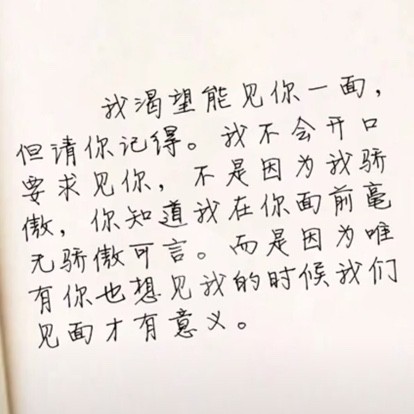 我渴望能见你一面，
但请你记得。我不会开口
要求见你，不是因为我骄
傲，你知道我在你面前毫
无骄傲可言。而是因为唯
有你也想见我的时候我们
见面才有意义。